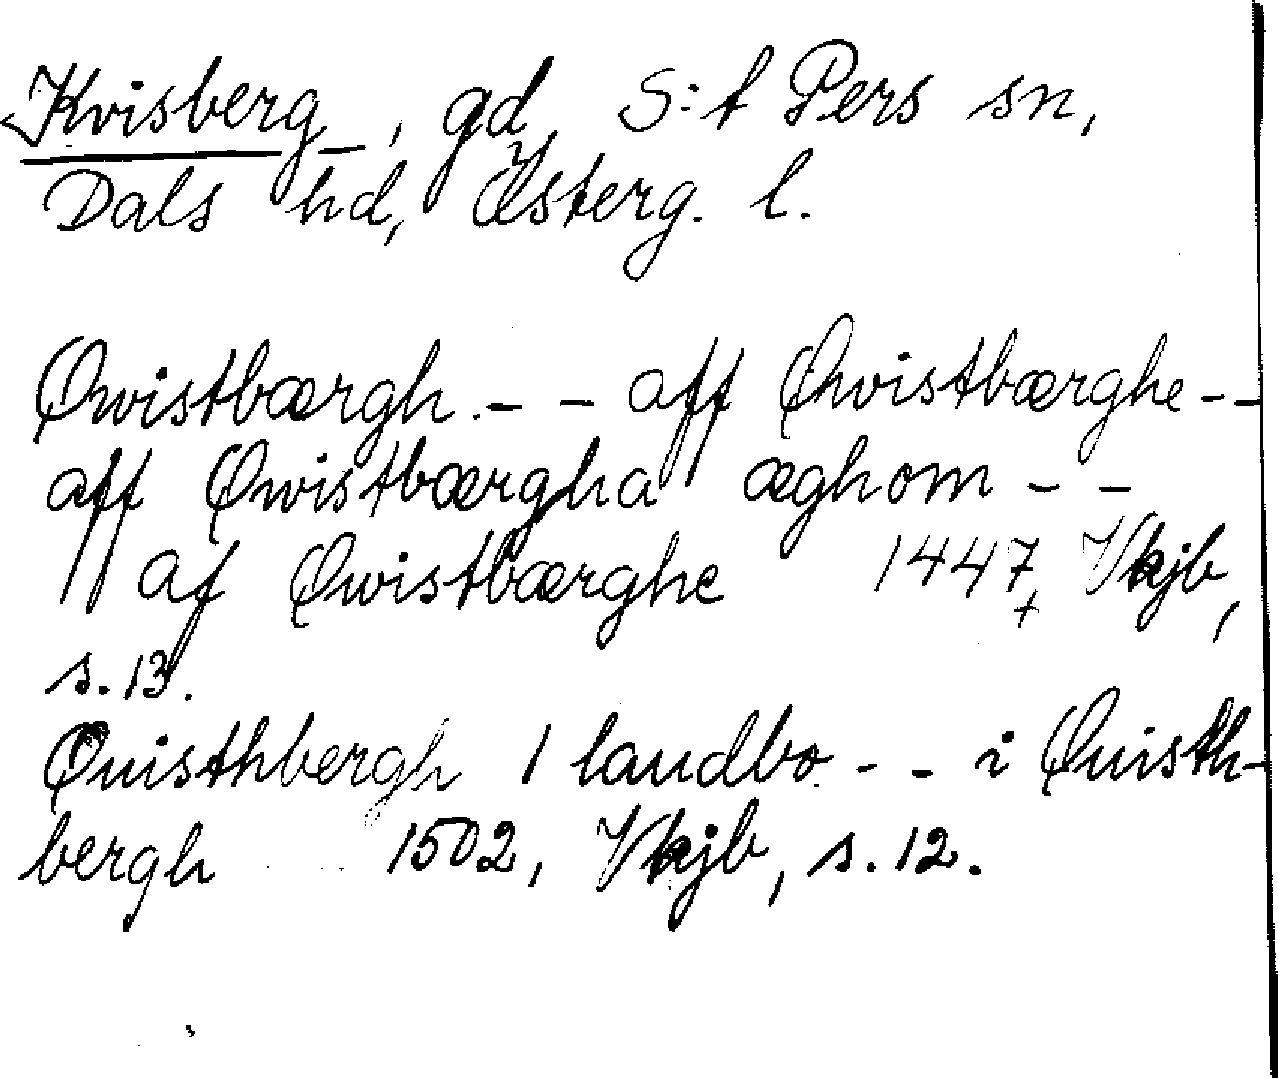 Kvisberg, gd, S:t Pers sn,
Dals hd, Österg. l.
Qwistbærgh. - - aff Qwistbærghe - -
aff Qwistbærgha æghom - -
af Qwistbærghe 1447, Vkjb,
s. 13.
Quisthbergh 1 landbo - - i Quisth-
bergh 1502, Vkjb, s. 12.